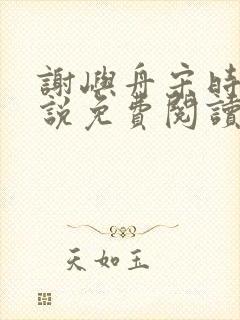 謝嶼舟宋時
說免費閱讀
天如玉